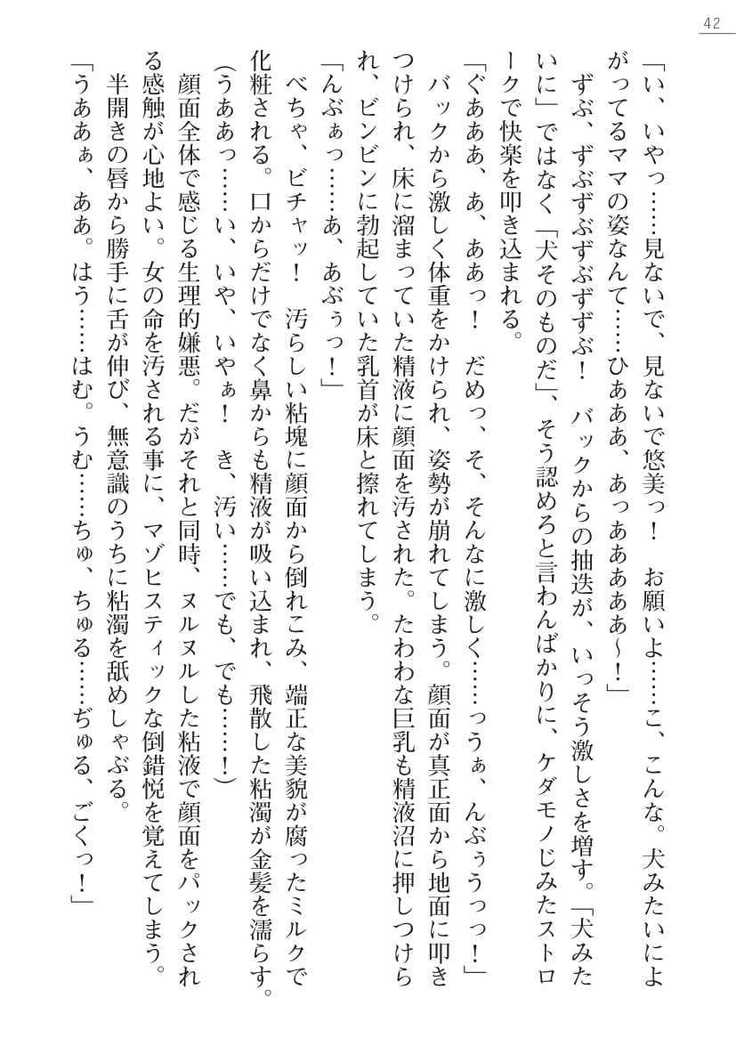 42
「い、いやっ……見ないで、見ないで悠美っ！　お願いよ……こ、こんな。犬みたいによ
がってるママの姿なんて……ひぁぁあ、あっああああぁ～！」
　ずぶ、ずぶずぶずぶずずぶ！　バックからの抽迭が、いっそう激しさを増す。「犬みた
いに」ではなく「犬そのものだ」、そう認めろと言わんばかりに、ケダモノじみたストロ
ークで快楽を叩き込まれる。
「ぐあああ、あ、ああっ！　だめっ、そ、そんなに激しく……っうぁ、んぶぅうっっ！」
　バックから激しく体重をかけられ、姿勢が崩れてしまう。顔面が真正面から地面に叩き
つけられ、床に溜まっていた精液に顔面を汚された。たわわな巨乳も精液沼に押しつけら
れ、ビンビンに勃起していた乳首が床と擦れてしまう。
「んぶぁっ……あ、あぶぅっ！」
　べちゃ、ビチャッ！　汚らしい粘塊に顔面から倒れこみ、端正な美貌が腐ったミルクで
化粧される。口からだけでなく鼻からも精液が吸い込まれ、飛散した粘濁が金髪を濡らす。
（うああっ……い、いや、いやぁ！　き、汚い……でも、でも……！）
　顔面全体で感じる生理的嫌悪。だがそれと同時、ヌルヌルした粘液で顔面をパックされ
る感触が心地よい。女の命を汚される事に、マゾヒスティックな倒錯悦を覚えてしまう。
　半開きの唇から勝手に舌が伸び、無意識のうちに粘濁を舐めしゃぶる。
「うああぁ、ああ。はう……はむ。うむ……ちゅ、ちゅる……ぢゅる、ごくっ！」